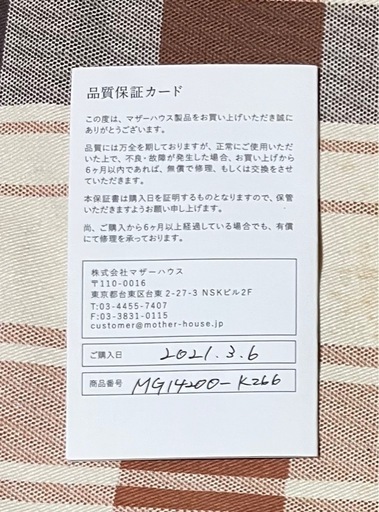 品質保証カード
この度は、マザーハウス製品をお買い上げいただき誠に
ありがとうございます。
品質には万全を期しておりますが、正常にご使用いただ
いた上で、不良・故障が発生した場合、お買い上げから
6ヶ月以内であれば、無償で修理、もしくは交換をさせ
ていただきます。
本保証書は購入日を証明するものとなりますので、保管
いただきますようお願い申し上げます。
尚、ご購入から6ヶ月以上経過している場合でも、有償
にて修理を承っております。
株式会社マザーハウス
〒110-0016
東京都台東区台東 2-27-3 NSKビル2F
T:03-4455-7407
F:03-3831-0115
customer@mother-house.jp
ご購入日 2021.3.6
商品番号 MG14200-K266